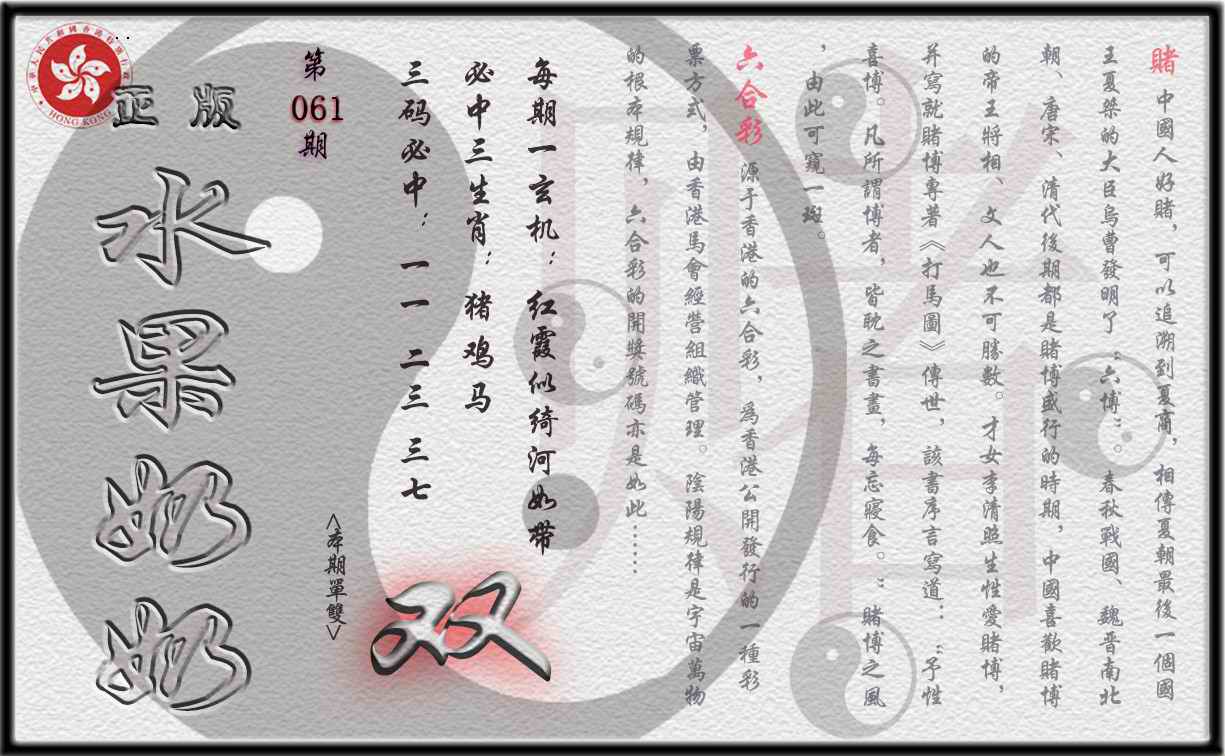 賭 中國人好賭，可以追溯到夏商，相傳夏朝最後一個國
王夏桀的大臣烏曹發明了“六博”。春秋戰國、魏晋南北
朝、唐宋、清代後期都是賭博盛行的時期，中國喜歡賭博
的帝王將相、文人也不可勝數。才女李清照生性愛賭博，
并寫就賭博專著《打馬圖》傳世，該書序言寫道：“予性
喜博。凡所謂博者，皆耽之書畫，每忘寢食。”賭博之風
，由此可窺一斑。
六合彩 源于香港的六合彩，爲香港公開發行的一種彩
票方式，由香港馬會經營組織管理。陰陽規律是宇宙萬物
的根本規律，六合彩的開獎號碼亦是如此……
每期一玄机：红霞似绮河如带
必中三生肖：猪鸡马
三码必中：一一 二三 三七
<本期單雙>
双
第
061
期
正版
水果奶奶
中華人民共和國香港特別行政區
HONG KONG